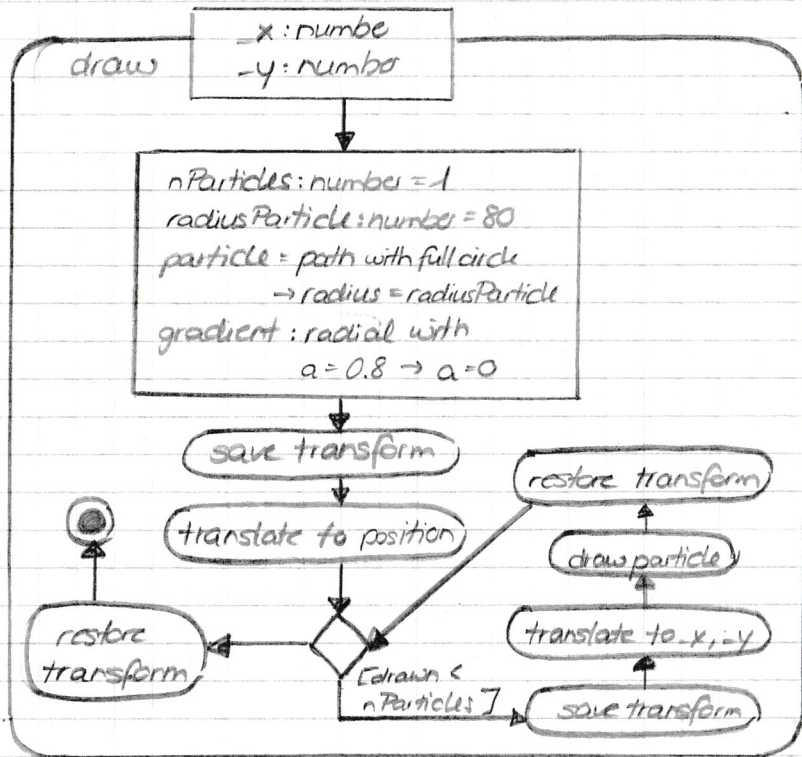 _x : numbe
_y : number
draw
nParticles : number = 1
radiusParticle : number = 80
particle = path with full circle
→ radius = radiusParticle
gradient : radial with
a = 0.8 → a = 0
save transform
translate to position
restore
transform
[drawn <
nParticles]
save transform
translate to _x, _y
draw particle
restore transform